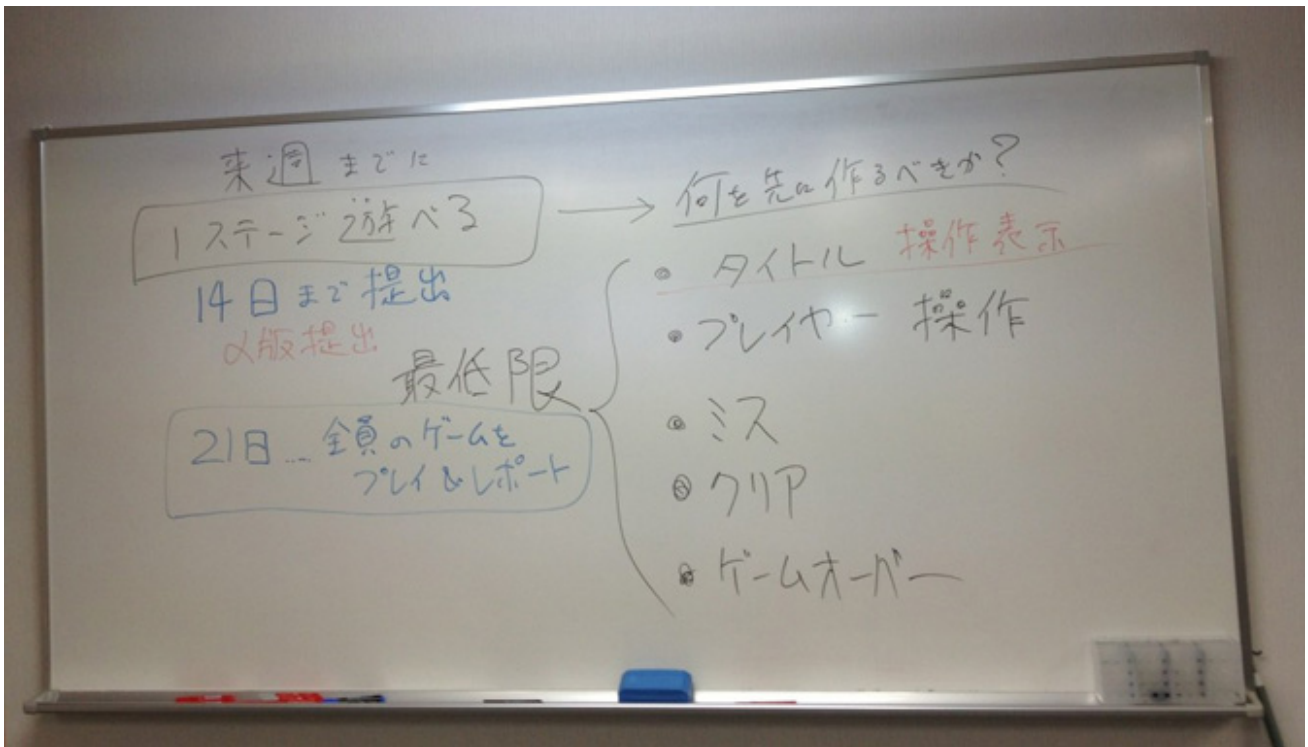 来週までに
1ステージ遊べる
14日まで提出
α版提出
最低限
21日... 全員のゲームを
プレイ&レポート
→ 何を先に作るべきか?
・タイトル 操作表示
・プレイヤー 操作
・ミス
・クリア
・ゲームオーバー